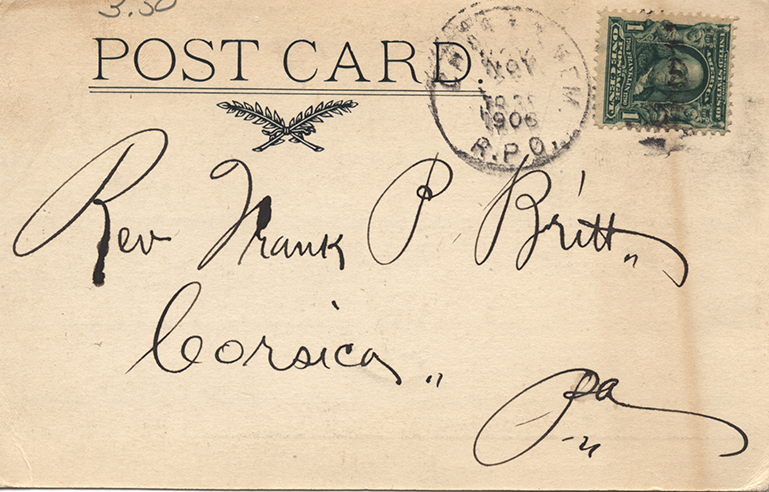 3.50
POST CARD.
NOV
1906
R.P.O.
1
1
Rev Frank P Britt
Corsica
Pa